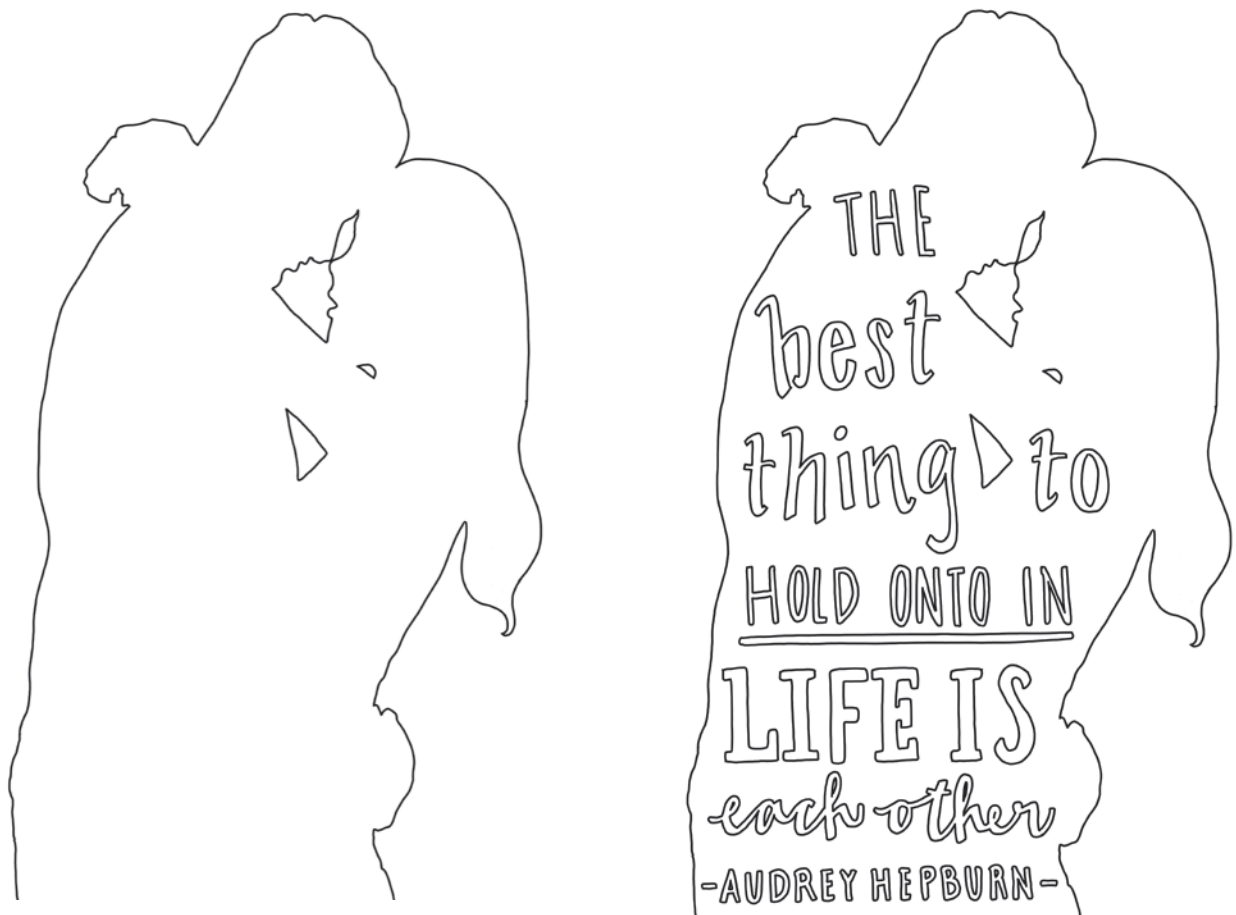 THE
best
thing to
HOLD ONTO IN
LIFE IS
each other
-AUDREY HEPBURN-